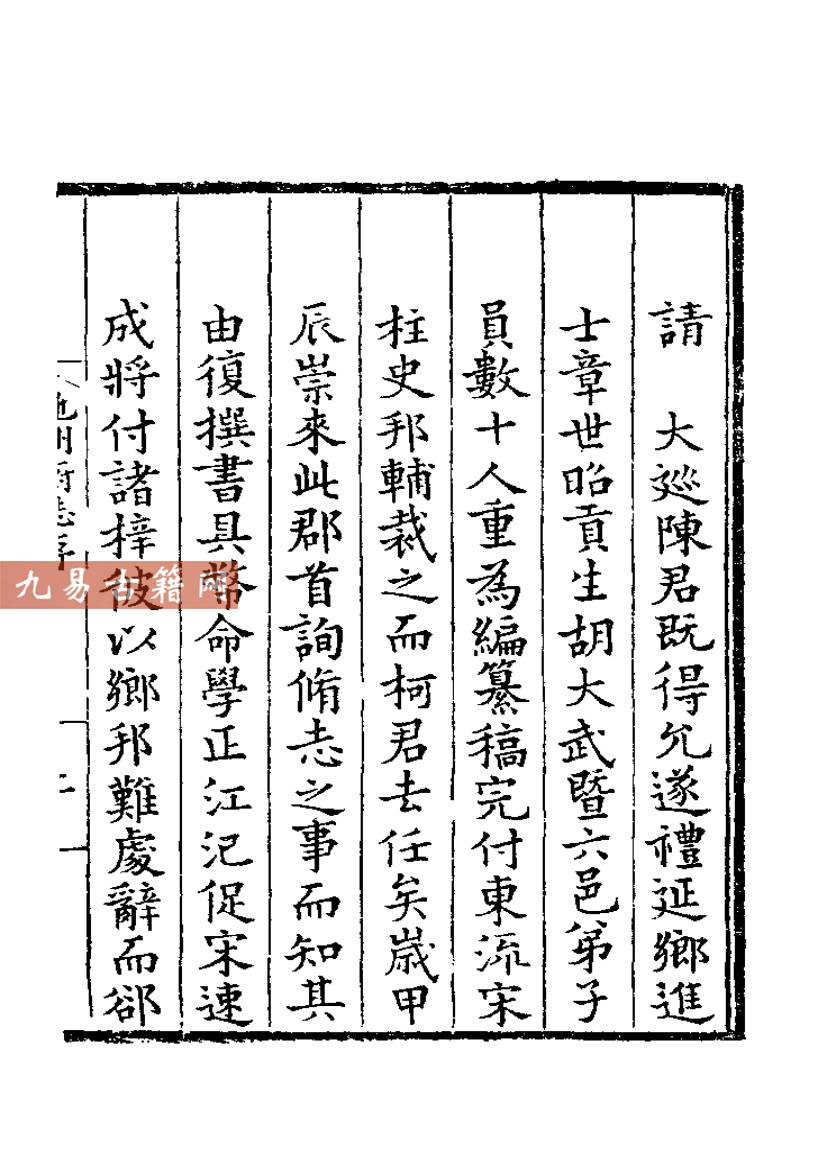 請　大廵陳君既得允遂禮延鄉進
士章世昭貢生胡大武暨六邑弟子
員數十人重為編纂稿完付東流宋
柱史邦輔裁之而柯君去任矣歲甲
辰崇來此郡首詢脩志之事而知其
由復撰書具幣命學正江汜促宋速
成將付諸梓彼以鄉邦難處辭而郤
池州府志序
九易古籍网